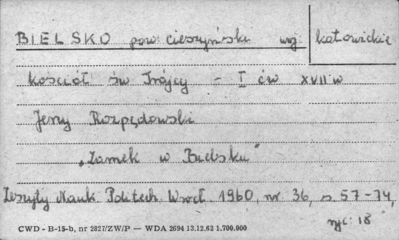 BIELSKO pow. Cieszyński woj. katowickie
Kościół św Trójcy - I ćw XVII w
Jerzy Rozpędowski
„Zamek w Bielsku"
Zeszyty Nauk. Politech. Wrocł. 1960, nr. 36, s. 57-74,
ryc: 18
CWD - B-15-b, nr 2827/ZW/P — WDA 2694 13.12.62 1.700.000